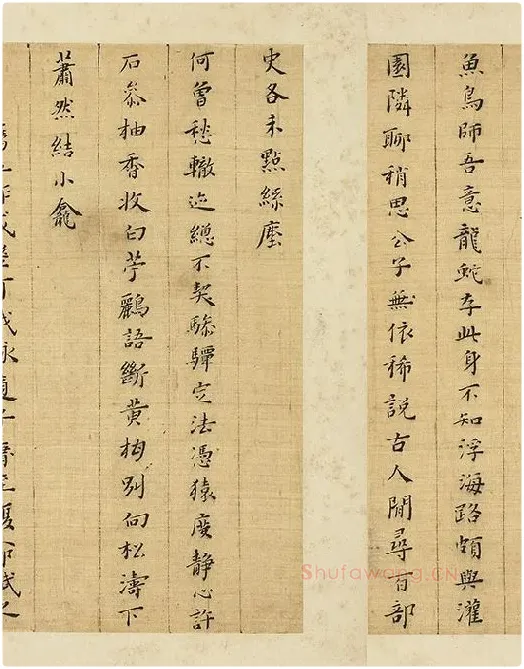 魚鳥師吾意龍蛇存此身不知浮海路頗與灌
園隣聊稍思公子無依稀說古人閒尋百部
史各未點絲塵
何曾愁轍迹總不契驂驔定法憑猿度静心許
石叅柚香收白苧鸝語斷黃柑別向松濤下
蕭然結小龕
Shufawang.CN